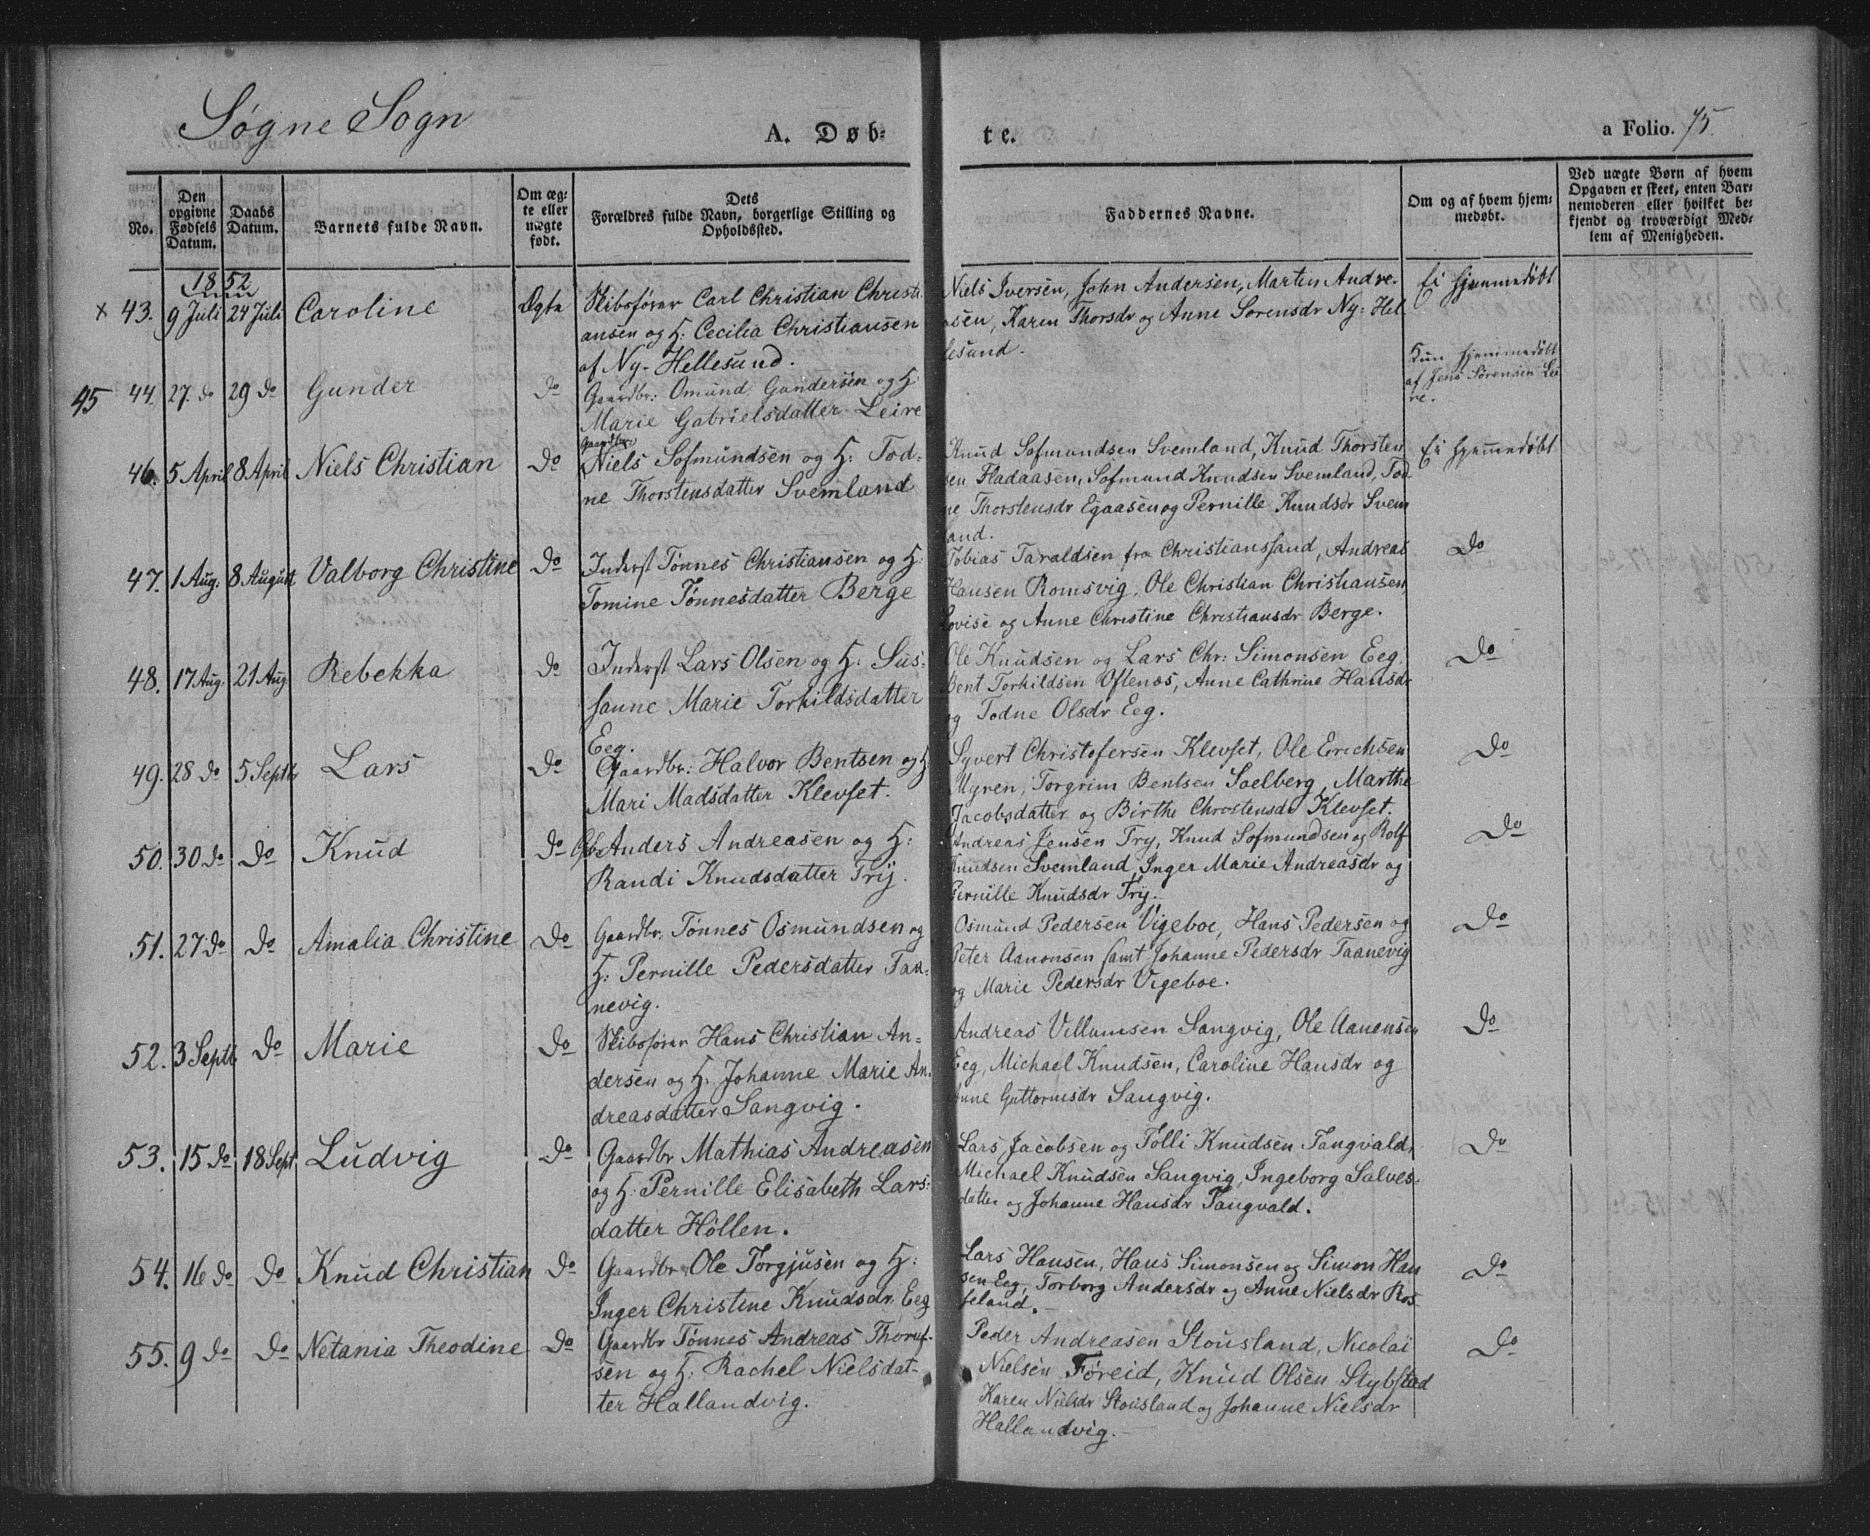 Søgne Sogn
A. Døb- te.
a Folio. 75.
No.
Den opgivne Fødsels Datum.
Daabs Datum.
Barnets fulde Navn.
Om ægte eller uægte født.
Dets Forældres fulde Navn, borgerlige Stilling og Opholdssted.
Faddernes Navne.
Om og af hvem hjemmedøbt.
Ved uægte Børn af hvem Opgaven er skeet, enten Barnemoderen eller hvilket bekjendt og troværdigt Medlem af Menigheden.
1852
x 43. 9 Juli 24 Juli Caroline Ægte
Skibsfører Carl Christian Christi-
ansen og H: Cecilia Christiansen
af Ny-Hellesund.
Niels Iversen, John Andersen, Marten Andre-
asen, Karen Thorsdr og Anne Sørensdr Ny-Hel-
lesund.
Ei hjemmedøbt
45 44 27 do 29 do Gunder do
Gaardbr: Omund Gundersen og H:
Marie Gabrielsdatter Leire
Kun hjemmedøbt
af Jens Sørensen Lei-
re.
46. 5 April 8 April Niels Christian do
Gaardbr:
Niels Sofmundsen og H: Tod-
ne Thorstensdatter Svemland
Knud Sofmundsen Svemland, Knud Thorsten
sen Fladaasen, Sofmund Knudsen Svemland, Tod
ne Thorstensdr Egaasen og Pernille Knudsdr Svem
land.
Ei hjemmedøbt
47. 1 Aug. 8 August Valborg Christine do
Inderst Tønnes Christiansen og H:
Tomine Tønnesdatter Berge
Tobias Taraldsen fra Christianssand, Andreas
Hansen Romsvig, Ole Christian Christiansen,
Lovise og Anne Christine Christiansdr Berge.
do
48. 17 Aug. 21 Aug Rebekka do
Inderst Lars Olsen og H: Sus-
sanne Marie Torkildsdatter
Eeg.
Ole Knudsen og Lars Chr: Simonsen Eeg,
Bent Torkildsen Oftenæs, Anne Cathrine Hansdr
og Todne Olsdr Eeg.
do
49. 28 do 5 Septbr Lars do
Gaardbr: Halvor Bentsen og H
Mari Madsdatter Klevset.
Syvert Christofersen Klevset, Ole Erichsen
Myren, Torgrim Bentsen Soelberg, Marthe
Jacobsdatter og Birthe Christensdr Klevset.
do
50. 30 do do Knud do
Gbr. Anders Andreasen og H:
Randi Knudsdatter Try.
Andreas Jensen Try, Knud Sofmundsen og Rolf
Knudsen Svemland, Inger Marie Andreasdr og
Pernille Knudsdr Try.
do
51. 27 do do Amalia Christine do
Gaardbr. Tønnes Osmundsen og
H: Pernille Pedersdatter Taa-
nevig.
Osmund Pedersen Vigeboe, Hans Pedersen og
Peter Aanonsen samt Johanne Pedersdr Taanevig
og Marie Pedersdr Vigeboe.
do
52. 3 Septb do Marie do
Skibsfører Hans Christian An-
dersen og H: Johanne Marie An-
dreasdatter Sangvig.
Andreas Villumsen Sangvig, Ole Aanonsen
Eeg, Michael Knudsen, Caroline Hansdr og
Anne Guttormsdr Sangvig.
do
53. 15 do 18 Sept Ludvig do
Gaardbr Mathias Andreasen
og H: Pernille Elisabeth Lars-
datter Höllen.
Lars Jacobsen og Tolli Knudsen Tangvald,
Michael Knudsen Sangvig, Ingeborg Salves-
datter og Johanne Hansdr Tangvald.
do
54. 16 do do Knud Christian do
Gaardbr Ole Torgjusen og H:
Inger Christine Knudsdr Eeg
Lars Hansen, Hans Simonsen og Simon Han
sen Eeg, Torborg Andersdr og Anne Nielsdr Ros-
seland.
do
55. 9 do do Netania Theodine do
Gaardbr Tønnes Andreas Thoruf-
sen og H: Rachel Nielsdat-
ter Hallandvig.
Peder Andreasen Stousland, Nicolai
Nielsen Føreid, Knud Olsen Stybstad
Karen Nielsdr Stousland og Johanne Nielsdr
Hallandvig.
do